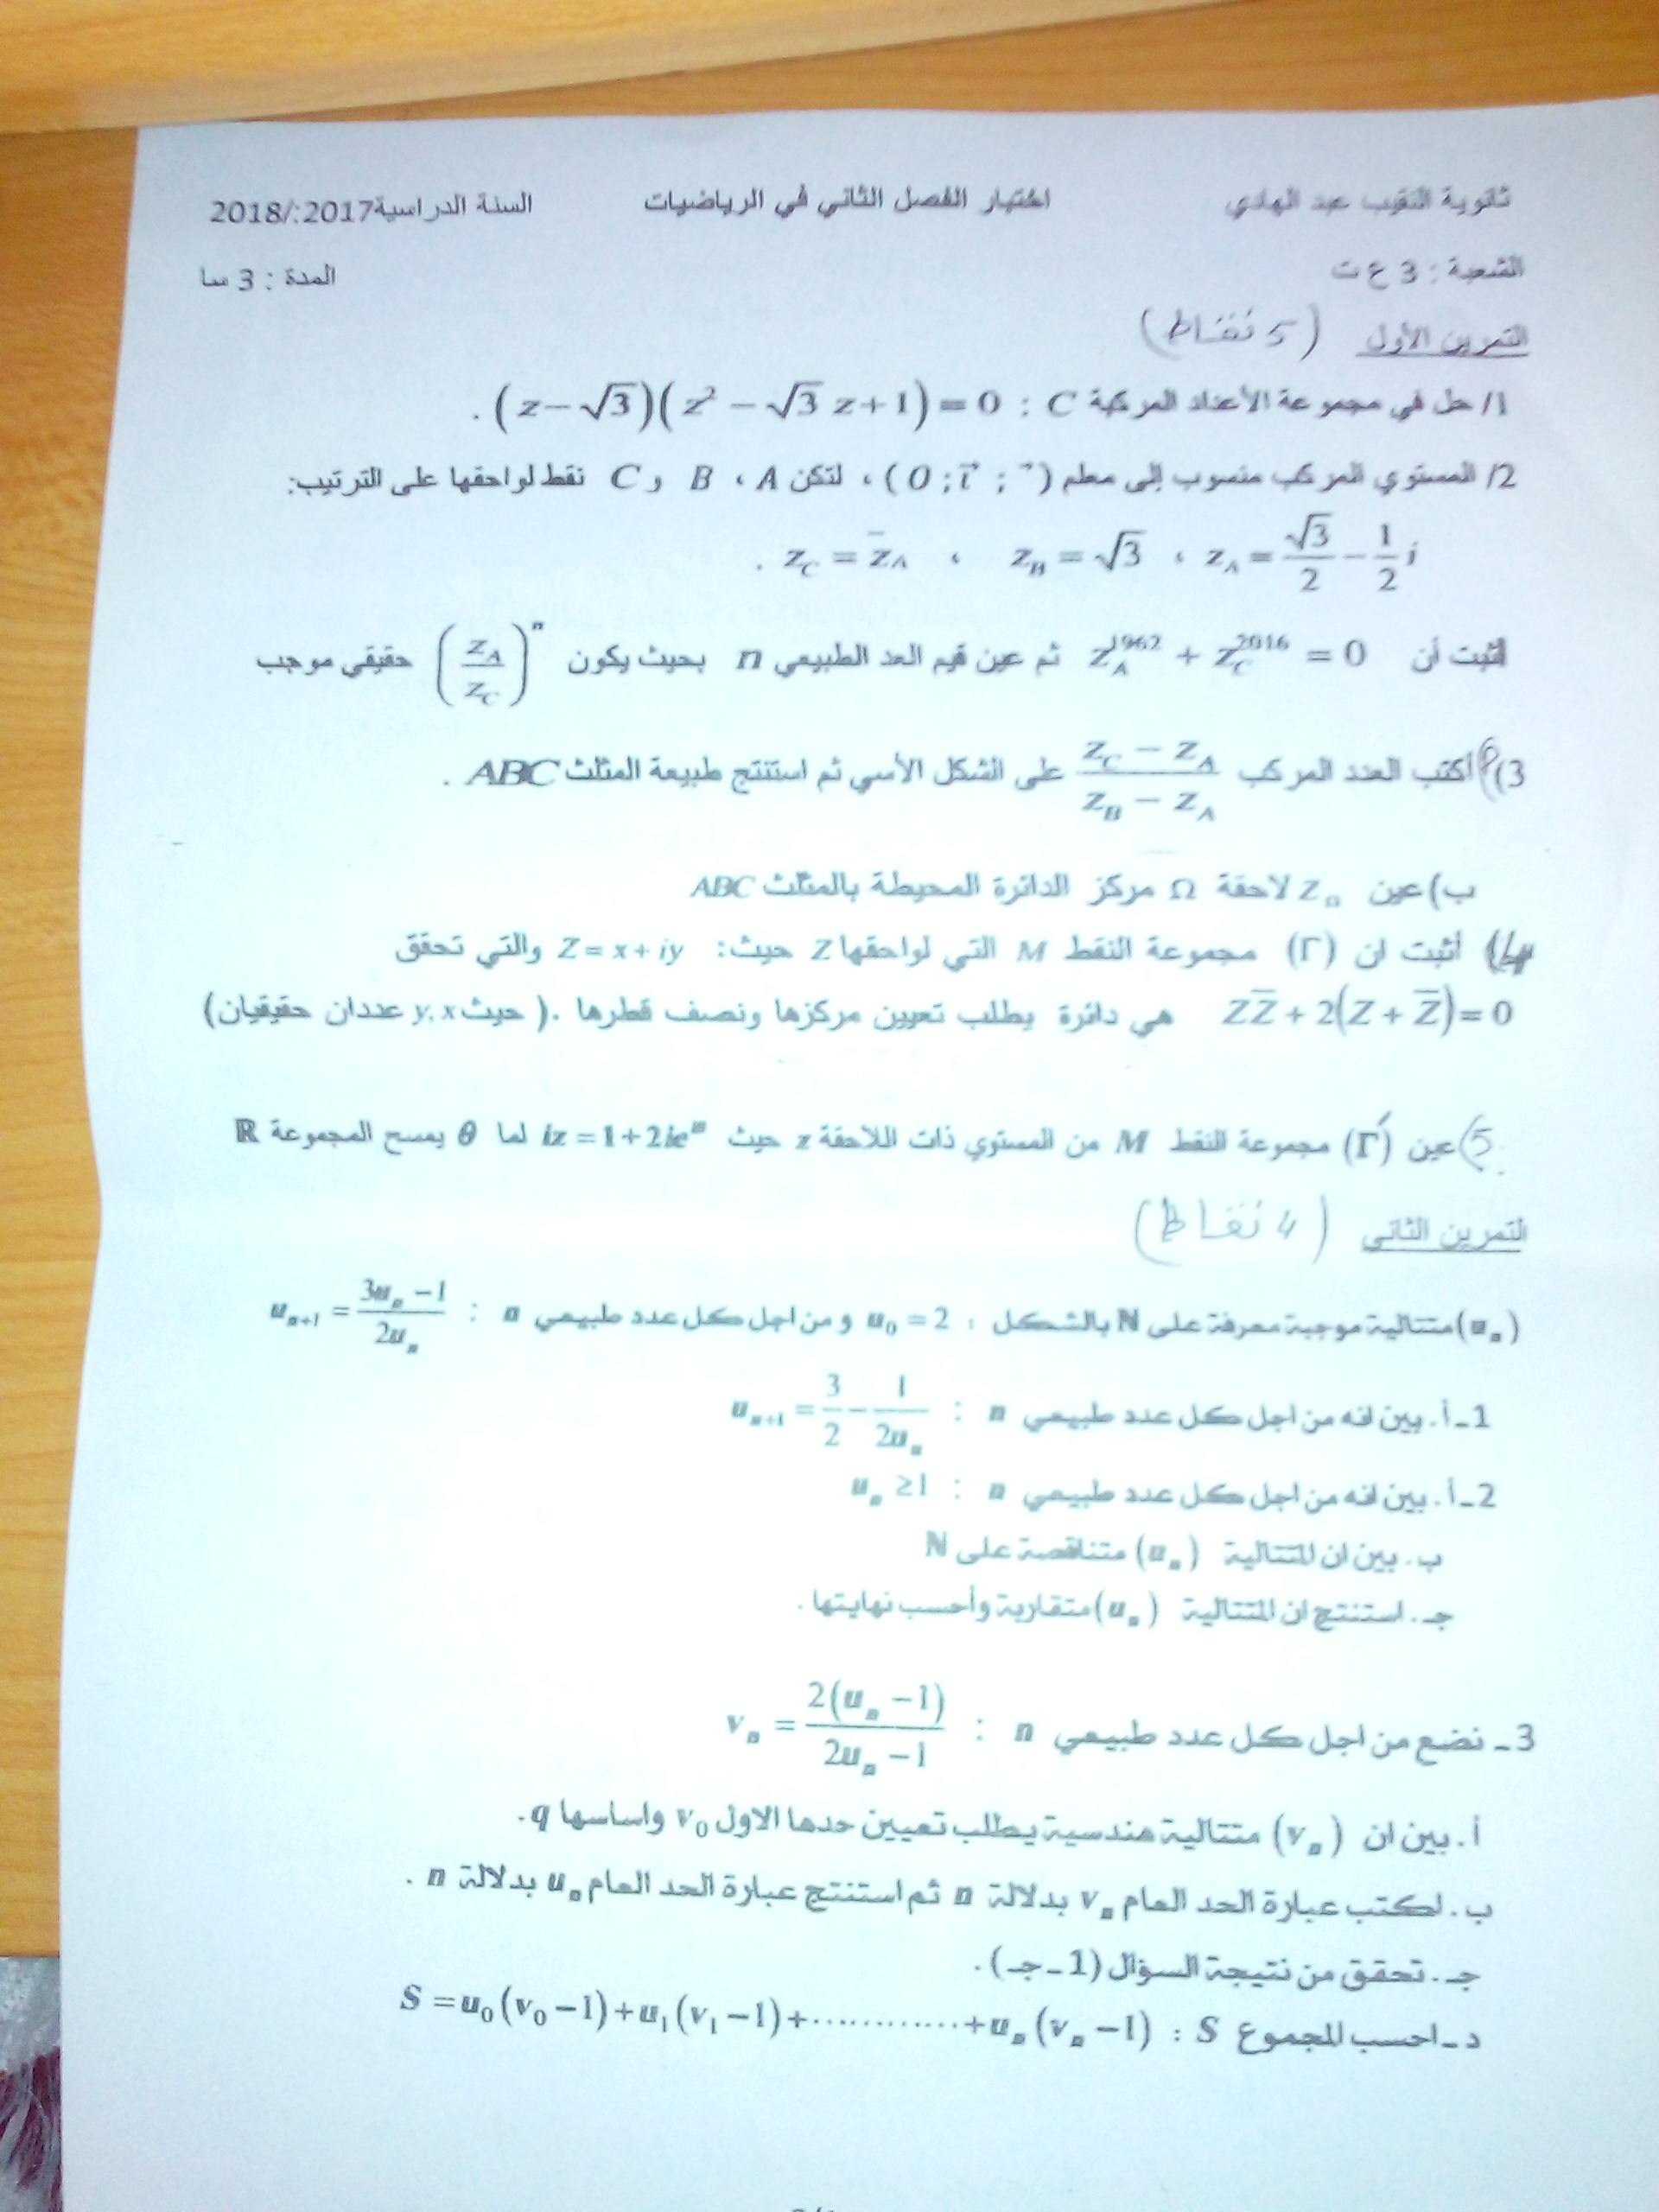 ثانوية النقيب عبد الهادي اختبار الفصل الثاني في الرياضيات السنة الدراسية:2017/2018
الشعبة : 3 ع ت المدة : 3 سا
التمرين الأول ( 5 نقاط )
1/ حل في مجموعة الأعداد المركبة C : (z−√3)(z² − √3 z+1) = 0 .
2/ المستوي المركب منسوب إلى معلم (O ; i⃗ ; ⃗) ، لتكن A ، B و C نقط لواحقها على الترتيب:
z_A = √3/2 − 1/2 i ، z_B = √3 ، z_C = z̄_A .
أثبت أن z_A^1962 + z_C^2016 = 0 ثم عين قيم العد الطبيعي n بحيث يكون (z_A/z_C)^n حقيقي موجب
3) أ) أكتب العدد المركب (z_C − z_A)/(z_B − z_A) على الشكل الأسي ثم استنتج طبيعة المثلث ABC .
ب) عين z_Ω لاحقة Ω مركز الدائرة المحيطة بالمثلث ABC
4) أثبت ان (Γ) مجموعة النقط M التي لواحقها Z حيث: Z = x + iy والتي تحقق
ZZ̄ + 2(Z + Z̄) = 0 هي دائرة يطلب تعيين مركزها ونصف قطرها .( حيث y, x عددان حقيقيان)
5) عين (Γ́) مجموعة النقط M من المستوي ذات اللاحقة z حيث iz = 1 + 2ie^{iθ} لما θ يمسح المجموعة ℝ
التمرين الثاني ( 4 نقاط )
(u_n) متتالية موجبة معرفة على ℕ بالشكل : u_0 = 2 و من اجل كل عدد طبيعي n : u_{n+1} = (3u_n − 1)/(2u_n)
1 ـ أ . بين انه من اجل كل عدد طبيعي n : u_{n+1} = 3/2 − 1/(2u_n)
2 ـ أ . بين انه من اجل كل عدد طبيعي n : u_n ≥ 1
ب . بين ان المتتالية (u_n) متناقصة على ℕ
جـ . استنتج ان المتتالية (u_n) متقاربة وأحسب نهايتها .
3 ـ نضع من اجل كل عدد طبيعي n : v_n = 2(u_n − 1)/(2u_n − 1)
أ . بين ان (v_n) متتالية هندسية يطلب تعيين حدها الاول v_0 واساسها q .
ب . اكتب عبارة الحد العام v_n بدلالة n ثم استنتج عبارة الحد العام u_n بدلالة n .
جـ . تحقق من نتيجة السؤال (1 ـ جـ) .
د ـ احسب المجموع S : S = u_0(v_0 − 1) + u_1(v_1 − 1) + ............ + u_n(v_n − 1)